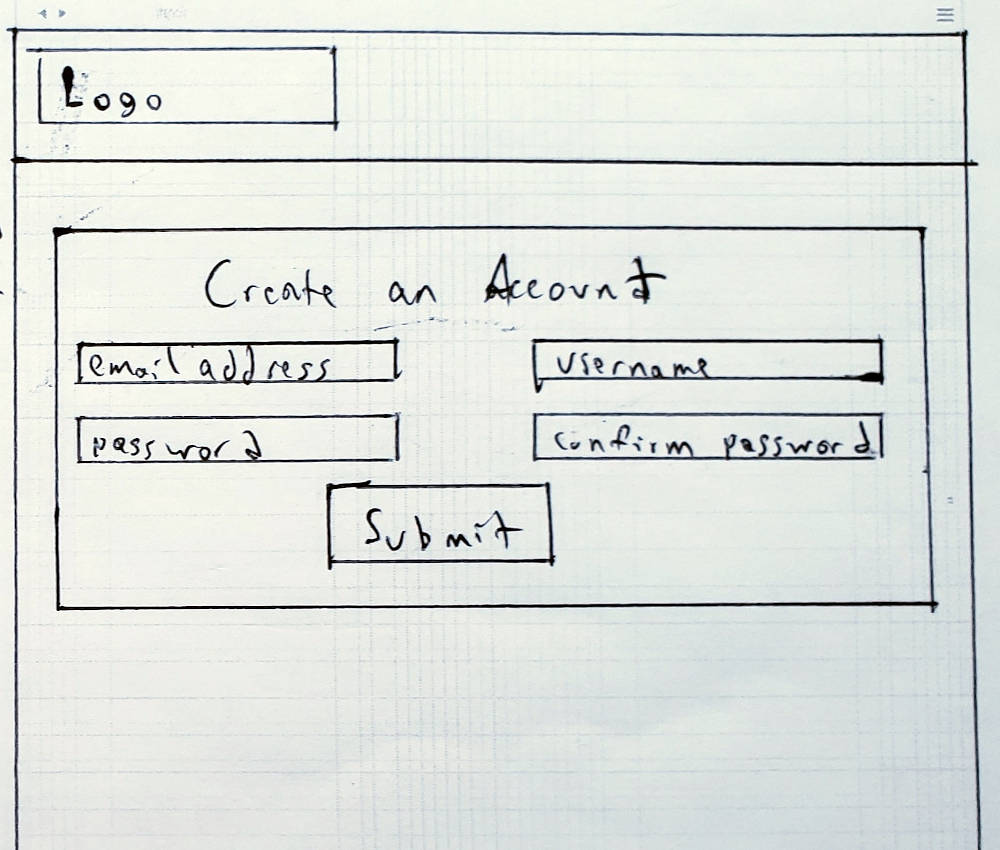 Logo
Create an Account
email address
username
password
confirm password
Submit